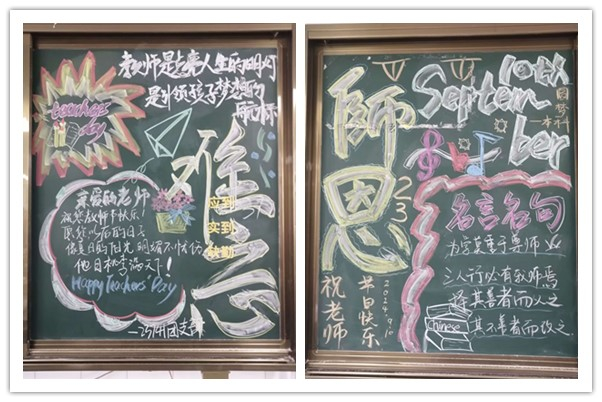 老师是点亮人生的明灯
是引领孩子梦想的
teacher
day
难忘
应到
实到
缺勤
亲爱的老师
祝您教师节快乐!
愿您以后的日子
像夏日的阳光 明媚不忧伤
他日桃李满天下!
Happy Teachers Day
師恩
23
祝老师
节日快乐
2024.9.10
10th
September
圆梦
一本科
名言名句
为学莫重于尊师
三人行必有我师焉
择其善者而从之
其不善者而改之
Chinese